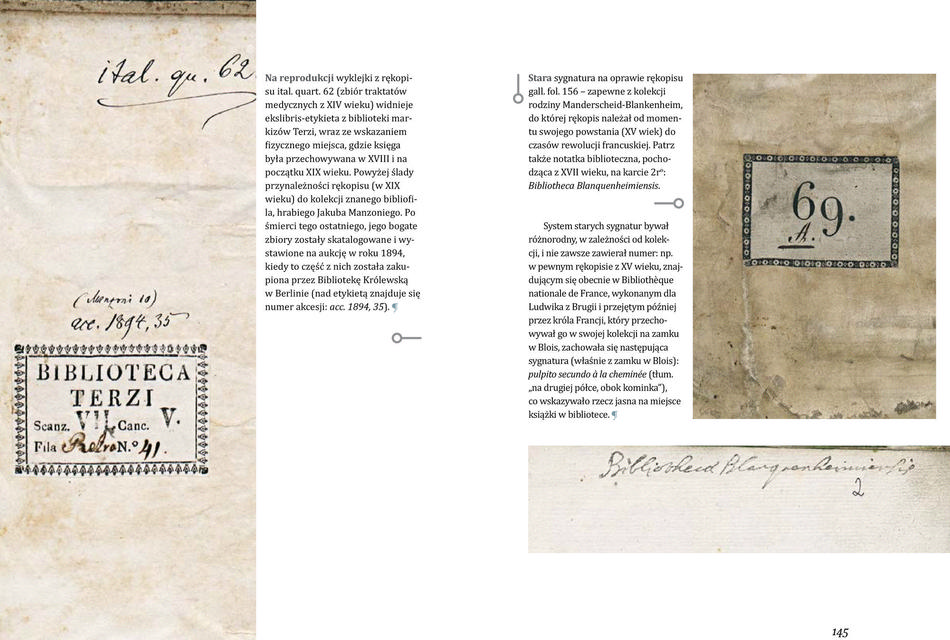 ital. qu. 62
(Manzoni 10)
acc. 1894, 35
BIBLIOTECA
TERZI
Scanz. VII. Canc. V.
Fila Retro N.º 41.
Na reprodukcji wyklejki z rękopi-
su ital. quart. 62 (zbiór traktatów
medycznych z XIV wieku) widnieje
ekslibris-etykieta z biblioteki mar-
kizów Terzi, wraz ze wskazaniem
fizycznego miejsca, gdzie księga
była przechowywana w XVIII i na
początku XIX wieku. Powyżej ślady
przynależności rękopisu (w XIX
wieku) do kolekcji znanego bibliofi-
la, hrabiego Jakuba Manzoniego. Po
śmierci tego ostatniego, jego bogate
zbiory zostały skatalogowane i wy-
stawione na aukcję w roku 1894,
kiedy to część z nich została zaku-
piona przez Bibliotekę Królewską
w Berlinie (nad etykietą znajduje się
numer akcesji: acc. 1894, 35). ¶
Stara sygnatura na oprawie rękopisu
gall. fol. 156 – zapewne z kolekcji
rodziny Manderscheid-Blankenheim,
do której rękopis należał od momen-
tu swojego powstania (XV wiek) do
czasów rewolucji francuskiej. Patrz
także notatka biblioteczna, pocho-
dząca z XVII wieku, na karcie 2rº:
Bibliotheca Blanquenheimiensis.
System starych sygnatur bywał
różnorodny, w zależności od kolek-
cji, i nie zawsze zawierał numer: np.
w pewnym rękopisie z XV wieku, znaj-
dującym się obecnie w Bibliothèque
nationale de France, wykonanym dla
Ludwika z Brugii i przejętym później
przez króla Francji, który przecho-
wywał go w swojej kolekcji na zamku
w Blois, zachowała się następująca
sygnatura (właśnie z zamku w Blois):
pulpito secundo à la cheminée (tłum.
„na drugiej półce, obok kominka”),
co wskazywało rzecz jasna na miejsce
książki w bibliotece. ¶
69.
A.
Bibliotheca Blanquenheimiensis
2
145